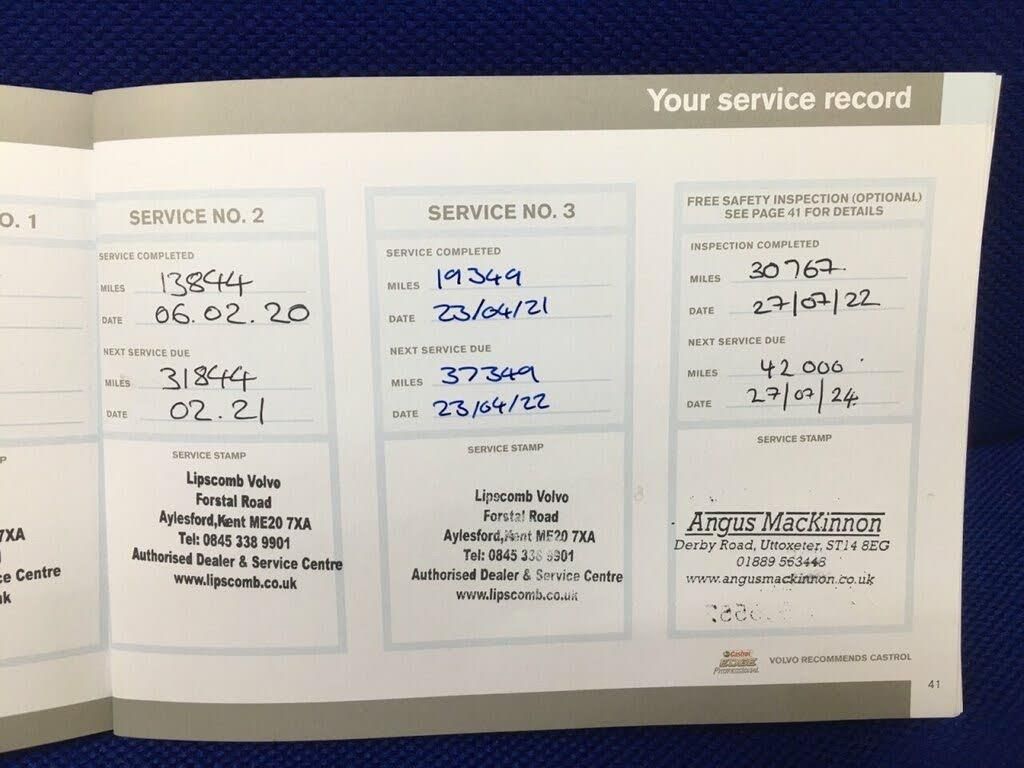 Your service record
O. 1
7XA
ce Centre
SERVICE NO. 2
SERVICE COMPLETED
MILES 13844
DATE 06.02.20
NEXT SERVICE DUE
MILES 31844
DATE 02.21
SERVICE STAMP
Lipscomb Volvo
Forstal Road
Aylesford,Kent ME20 7XA
Tel: 0845 338 9901
Authorised Dealer & Service Centre
www.lipscomb.co.uk
SERVICE NO. 3
SERVICE COMPLETED
MILES 19349
DATE 23/04/21
NEXT SERVICE DUE
MILES 37349
DATE 23/04/22
SERVICE STAMP
Lipscomb Volvo
Forstal Road
Aylesford,Kent ME20 7XA
Tel: 0845 338 9901
Authorised Dealer & Service Centre
www.lipscomb.co.uk
FREE SAFETY INSPECTION (OPTIONAL)
SEE PAGE 41 FOR DETAILS
INSPECTION COMPLETED
MILES 30767
DATE 27/07/22
NEXT SERVICE DUE
MILES 42000
DATE 27/07/24
SERVICE STAMP
Angus MacKinnon
Derby Road, Uttoxeter, ST14 8EG
01889 563448
www.angusmackinnon.co.uk
Castrol
EDGE
Professional
VOLVO RECOMMENDS CASTROL
41